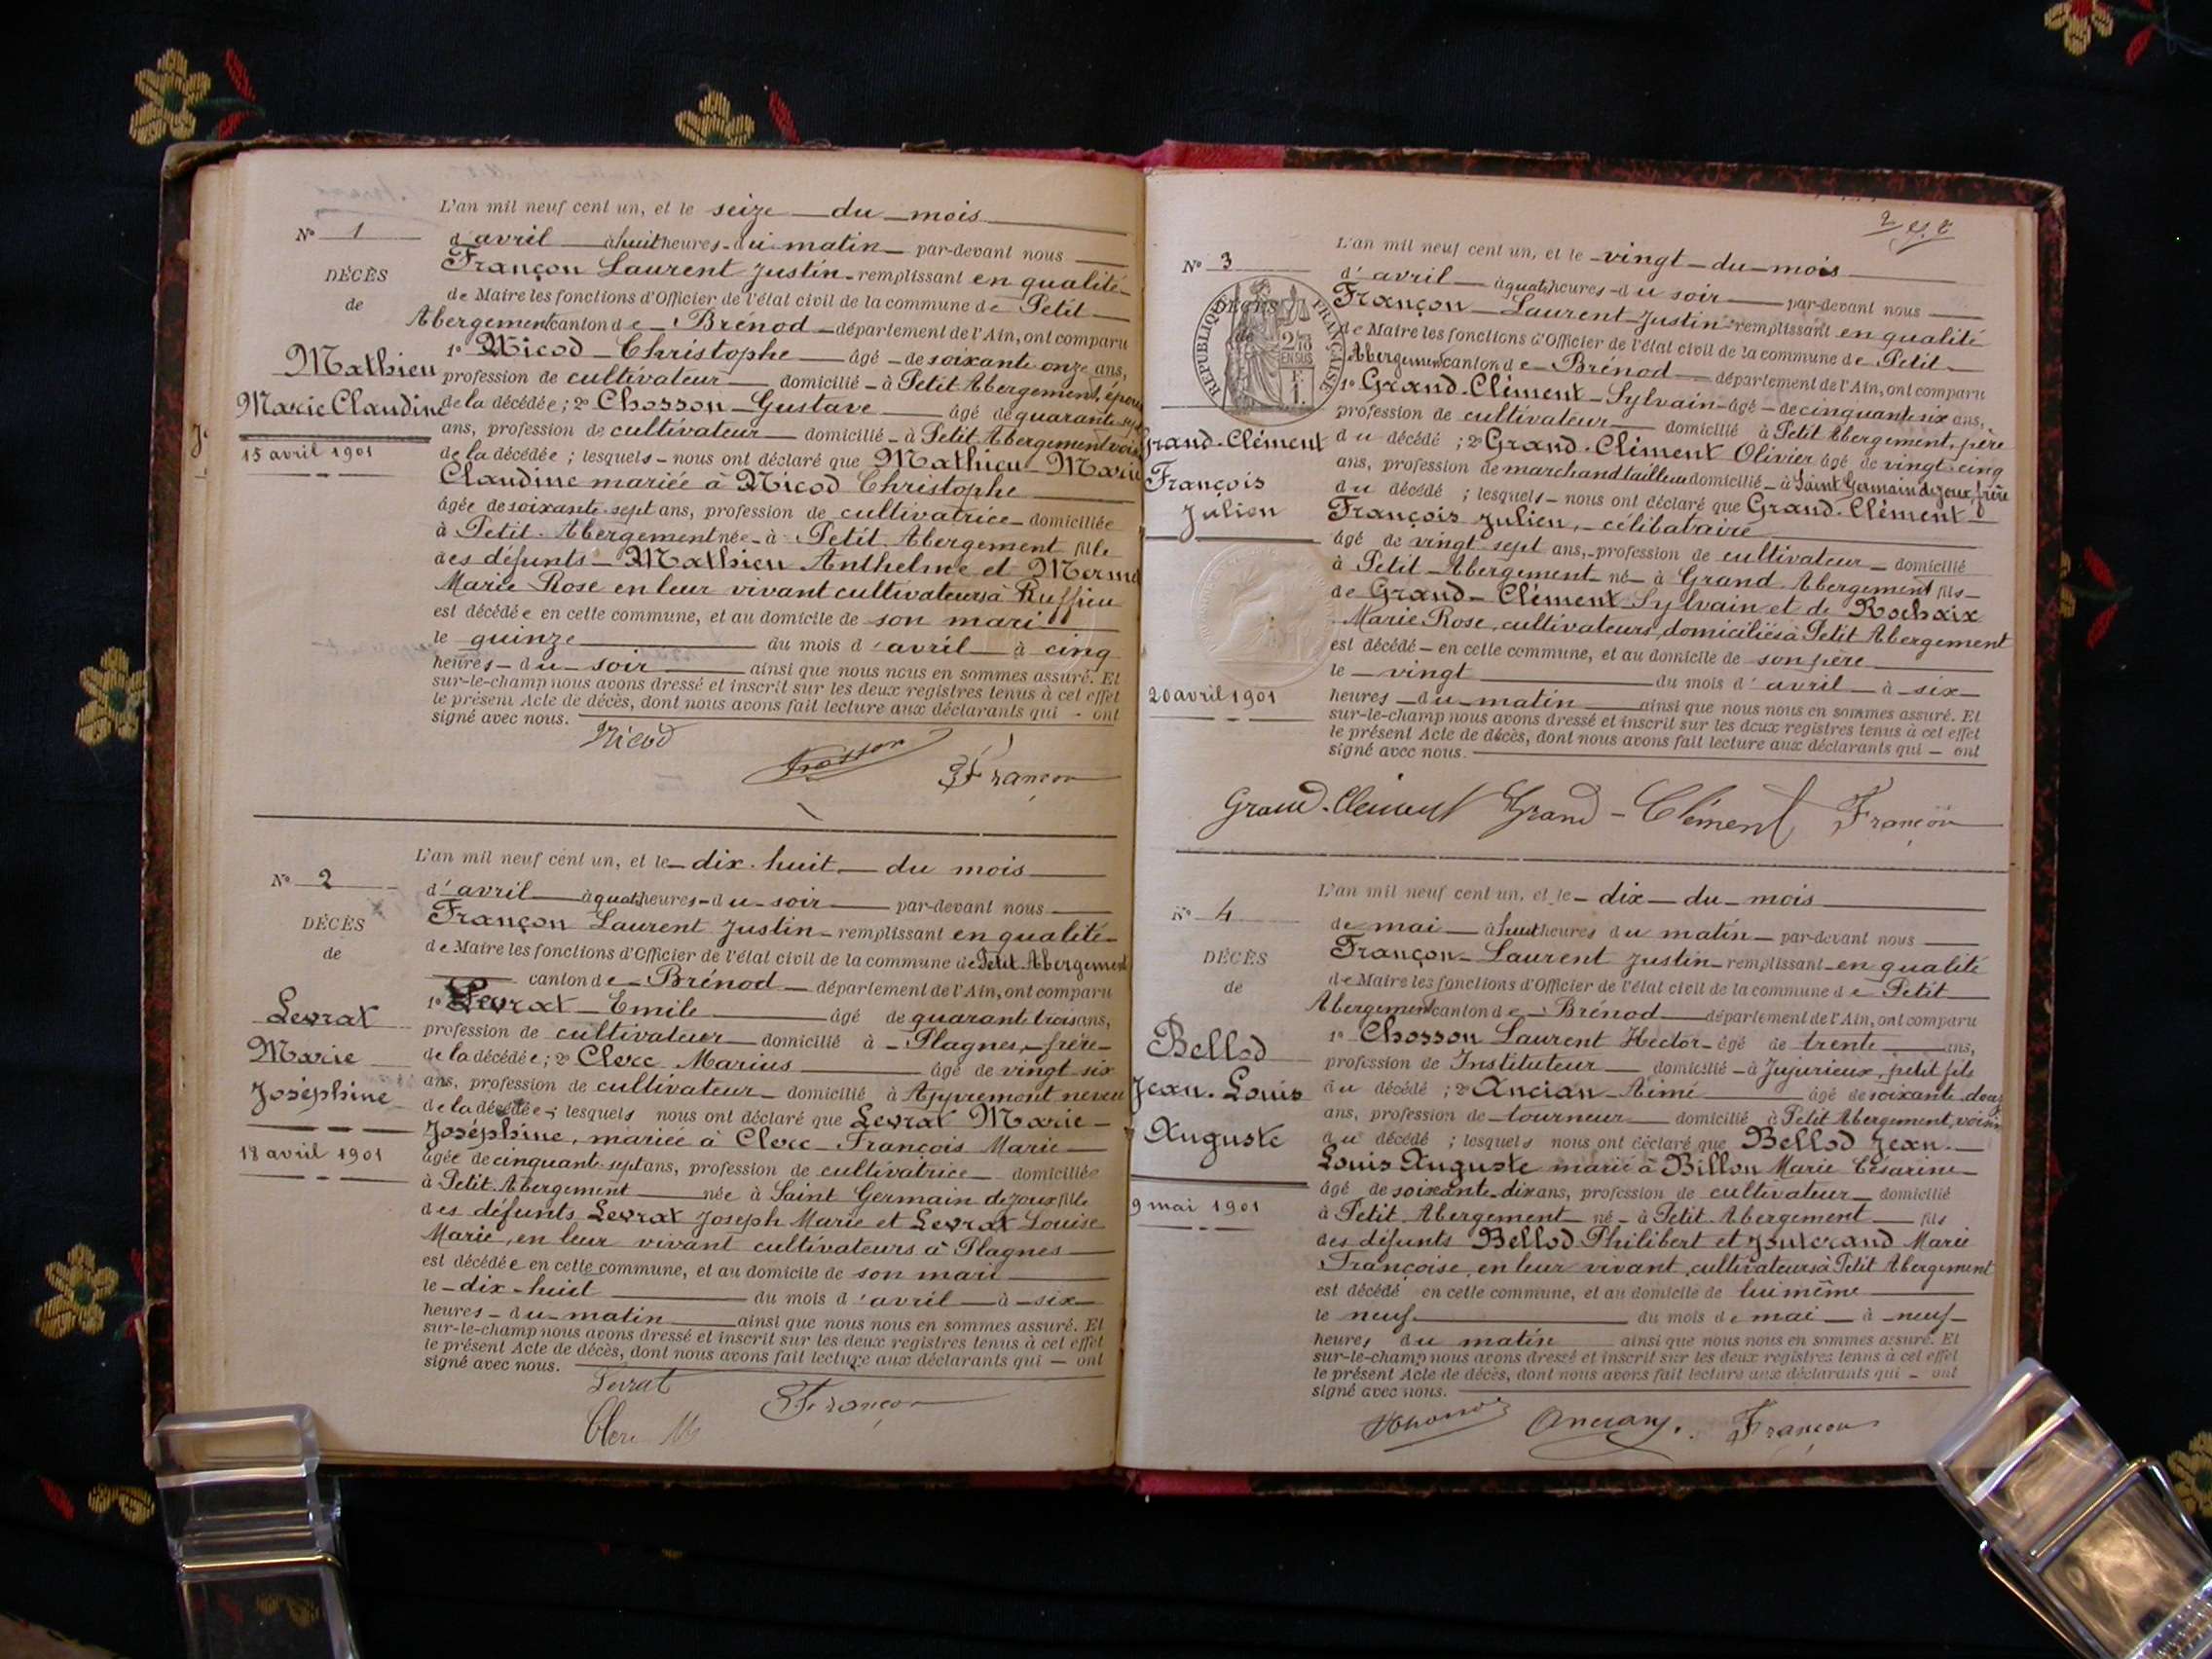 L'an mil neuf cent un, et le seize du mois
N° 1
d'avril à huit heures du matin par-devant nous
DÉCÈS
Françon Laurent Justin remplissant en qualité
de
de Maire les fonctions d'Officier de l'état civil de la commune de Petit
Abergement canton de Brénod département de l'Ain, ont comparu
1° Nicod Christophe âgé de soixante onze ans,
Mathieu
profession de cultivateur domicilié à Petit Abergement, époux
Marie Claudine
de la décédée; 2° Chosson Gustave âgé de quarante
ans, profession de cultivateur domicilié à Petit Abergement voisin
15 avril 1901
de la décédée; lesquels nous ont déclaré que Mathieu Marie
Claudine mariée à Nicod Christophe
âgée de soixante-sept ans, profession de cultivatrice domiciliée
à Petit Abergement née à Petit Abergement fille
des défunts Mathieu Anthelme et
Marie Rose en leur vivant cultivateurs à Ruffieu
est décédée en cette commune, et au domicile de son mari
le quinze du mois d'avril à cinq
heures du soir ainsi que nous nous en sommes assuré. Et
sur-le-champ nous avons dressé et inscrit sur les deux registres tenus à cet effet
le présent Acte de décès, dont nous avons fait lecture aux déclarants qui ont
signé avec nous.
Nicod
Chosson
Françon
L'an mil neuf cent un, et le dix-huit du mois
N° 2
d'avril à quatre heures du soir par-devant nous
DÉCÈS
Françon Laurent Justin remplissant en qualité
de
de Maire les fonctions d'Officier de l'état civil de la commune de Petit Abergement
canton de Brénod département de l'Ain, ont comparu
1° Levrat Emile âgé de quarante trois ans,
Levrat
profession de cultivateur domicilié à Plagnes, frère
Marie
de la décédée; 2° Clerc Marius âgé de vingt six
Joséphine
ans, profession de cultivateur domicilié à Apremont neveu
de la décédée; lesquels nous ont déclaré que Levrat Marie
Joséphine, mariée à Clerc François Marie
18 avril 1901
âgée de cinquante-sept ans, profession de cultivatrice domiciliée
à Petit Abergement née à Saint Germain de Joux fille
des défunts Levrat Joseph Marie et Levrat Louise
Marie, en leur vivant cultivateurs à Plagnes
est décédée en cette commune, et au domicile de son mari
le dix-huit du mois d'avril à six
heures du matin ainsi que nous nous en sommes assuré. Et
sur-le-champ nous avons dressé et inscrit sur les deux registres tenus à cet effet
le présent Acte de décès, dont nous avons fait lecture aux déclarants qui ont
signé avec nous.
Levrat
Françon
Clerc M
2
L'an mil neuf cent un, et le vingt du mois
N° 3
d'avril à quatre heures du soir par-devant nous
DÉCÈS
RÉPUBLIQUE FRANÇAISE
Françon Laurent Justin remplissant en qualité
de
2/10 EN SUS
de Maire les fonctions d'Officier de l'état civil de la commune de Petit
Abergement canton de Brénod département de l'Ain, ont comparu
1° Grand-Clément Sylvain âgé de cinquante six ans,
profession de cultivateur domicilié à Petit Abergement, père
Grand-Clément
du décédé; 2° Grand-Clément Olivier âgé de vingt cinq
ans, profession de marchand tailleur domicilié à Saint Germain de Joux, frère
François
du décédé; lesquels nous ont déclaré que Grand-Clément
Julien
François Julien, célibataire
âgé de vingt-sept ans, profession de cultivateur domicilié
à Petit Abergement né à Grand Abergement fils
de Grand-Clément Sylvain et de Rochaix
Marie Rose, cultivateurs, domiciliés à Petit Abergement
est décédé en cette commune, et au domicile de son père
le vingt du mois d'avril à six
20 avril 1901
heures du matin ainsi que nous nous en sommes assuré. Et
sur-le-champ nous avons dressé et inscrit sur les deux registres tenus à cet effet
le présent Acte de décès, dont nous avons fait lecture aux déclarants qui ont
signé avec nous.
Grand-Clément Grand-Clément Françon
L'an mil neuf cent un, et le dix du mois
N° 4
de mai à huit heures du matin par-devant nous
DÉCÈS
Françon Laurent Justin remplissant en qualité
de
de Maire les fonctions d'Officier de l'état civil de la commune de Petit
Abergement canton de Brénod département de l'Ain, ont comparu
1° Chosson Laurent Hector âgé de trente ans,
Bellod
profession de Instituteur domicilié à Jujurieux, petit fils
Jean-Louis
du décédé; 2° Ancian Aimé âgé de soixante
ans, profession de tourneur domicilié à Petit Abergement, voisin
Auguste
du décédé; lesquels nous ont déclaré que Bellod Jean-
Louis Auguste marié à Billon Marie Césarine
âgé de soixante-dix ans, profession de cultivateur domicilié
9 mai 1901
à Petit Abergement né à Petit Abergement fils
des défunts Bellod Philibert et Jouterand Marie
Françoise, en leur vivant, cultivateurs à Petit Abergement
est décédé en cette commune, et au domicile de lui même
le neuf du mois de mai à neuf
heures du matin ainsi que nous nous en sommes assuré. Et
sur-le-champ nous avons dressé et inscrit sur les deux registres tenus à cet effet
le présent Acte de décès, dont nous avons fait lecture aux déclarants qui ont
signé avec nous.
Chosson Ancian Françon